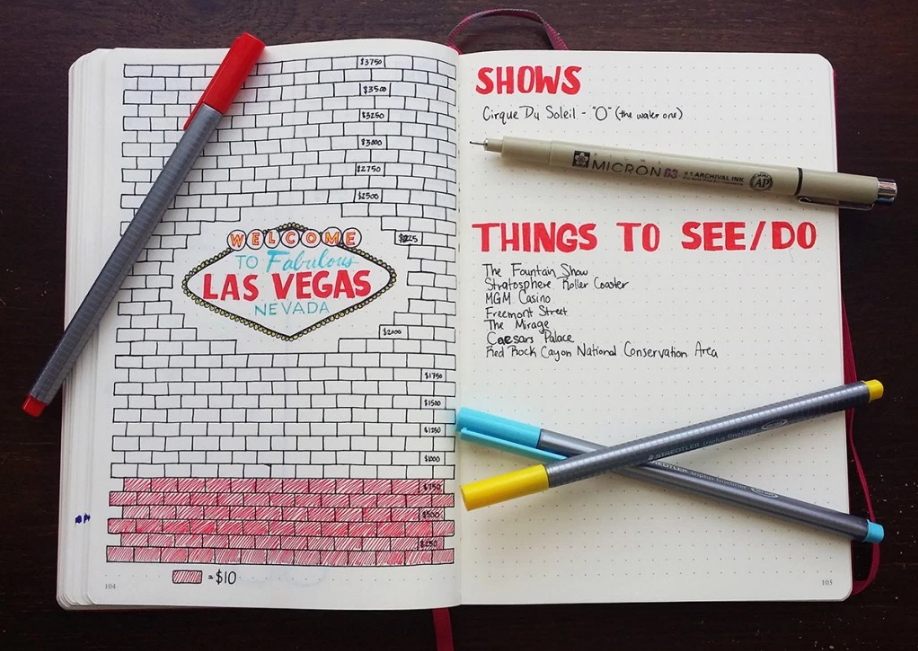 $3750
$3500
$3250
$3000
$2750
$2500
WELCOME
TO Fabulous
LAS VEGAS
NEVADA
$2000
$1750
$1500
$1250
$1000
$750
$500
$250
= $10
104
SHOWS
Cirque Du Soleil - "O" (the water one)
MICRON 03 ARCHIVAL INK AP
THINGS TO SEE/DO
The Fountain Show
Stratosphere Roller Coaster
MGM Casino
Freemont Street
The Mirage
Caesars Palace
Red Rock Cayon National Conservation Area
STAEDTLER
STAEDTLER
105